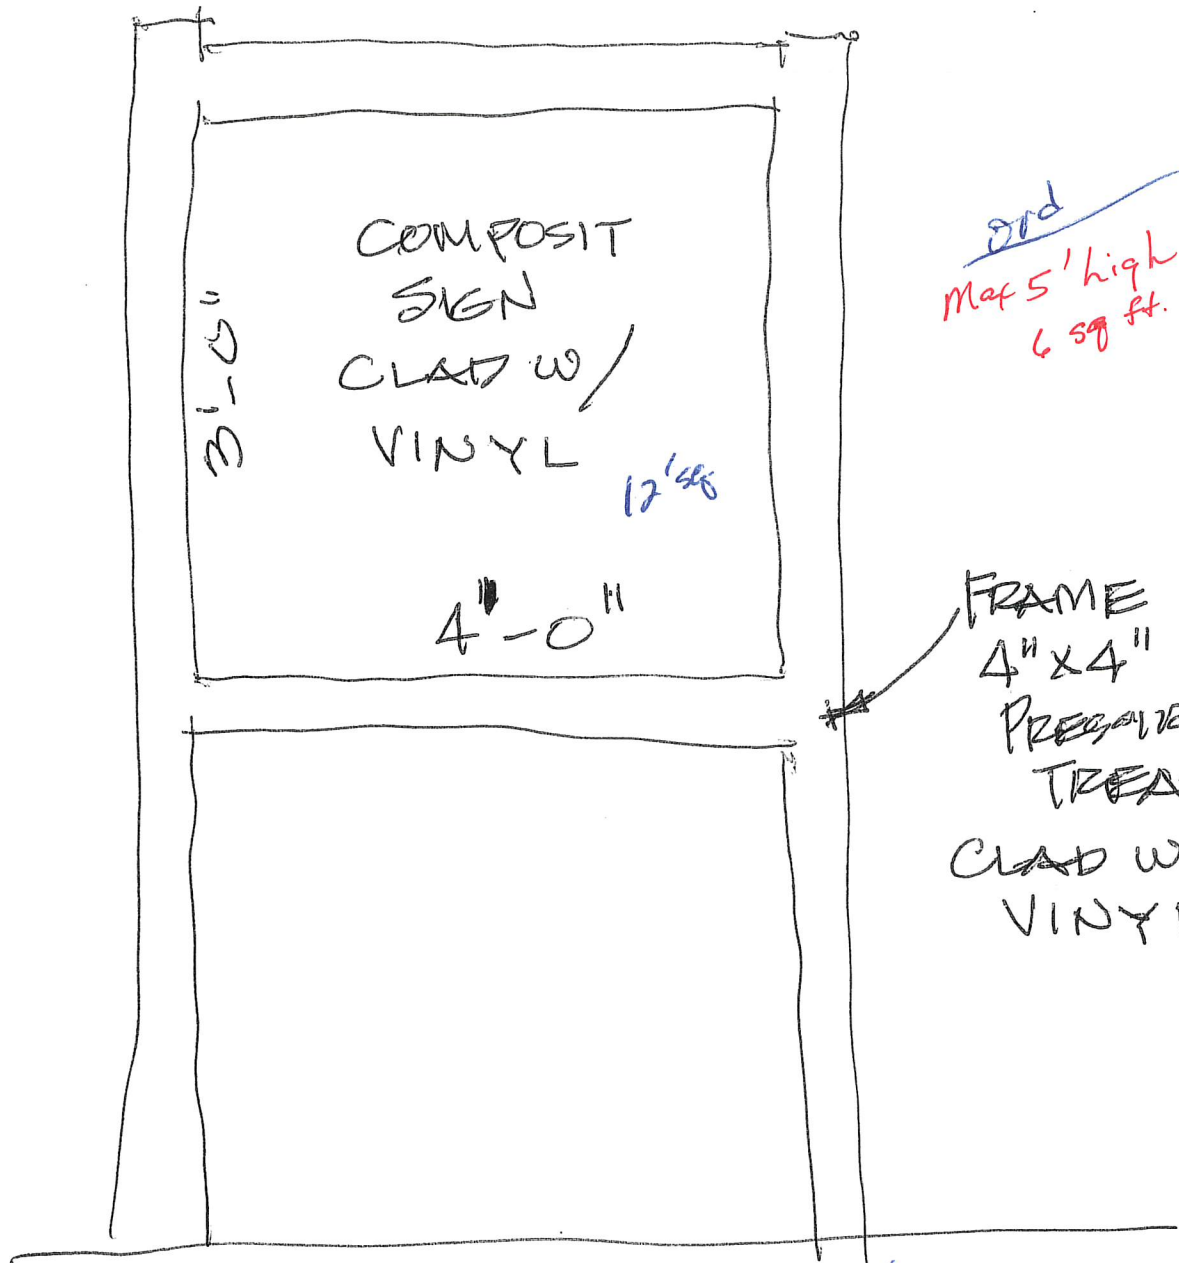 COMPOSIT
SIGN
CLAD W/
VINYL
3'-0"
12'sq
4"-0"
ord
Max 5' high
6 sq ft.
FRAME
4"x4"
TREA
CLAD W
VINY